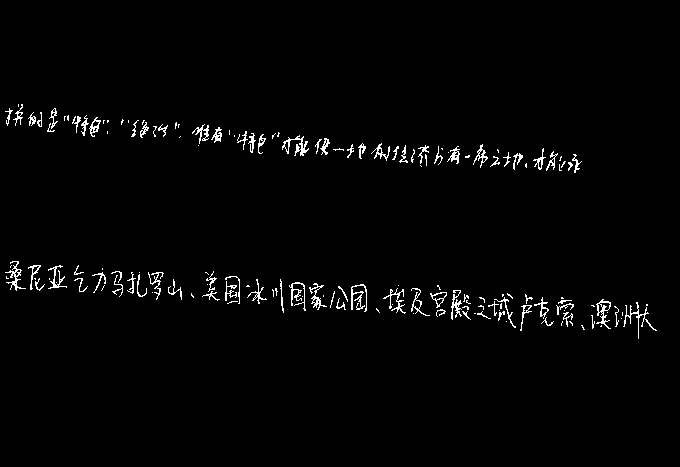 拼的是“特色”、“绝活”，唯有“特色”才能使一地的经济占有一席之地，才能永
桑尼亚乞力马扎罗山、美国冰川国家公园、埃及宫殿之城卢克索、澳洲大